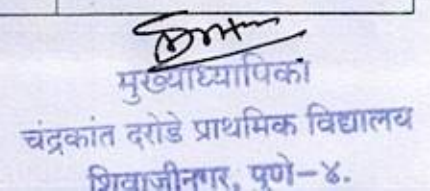 मुख्याध्यापिका
चंद्रकांत दरोडे प्राथमिक विद्यालय
शिवाजीनगर, पुणे–४.